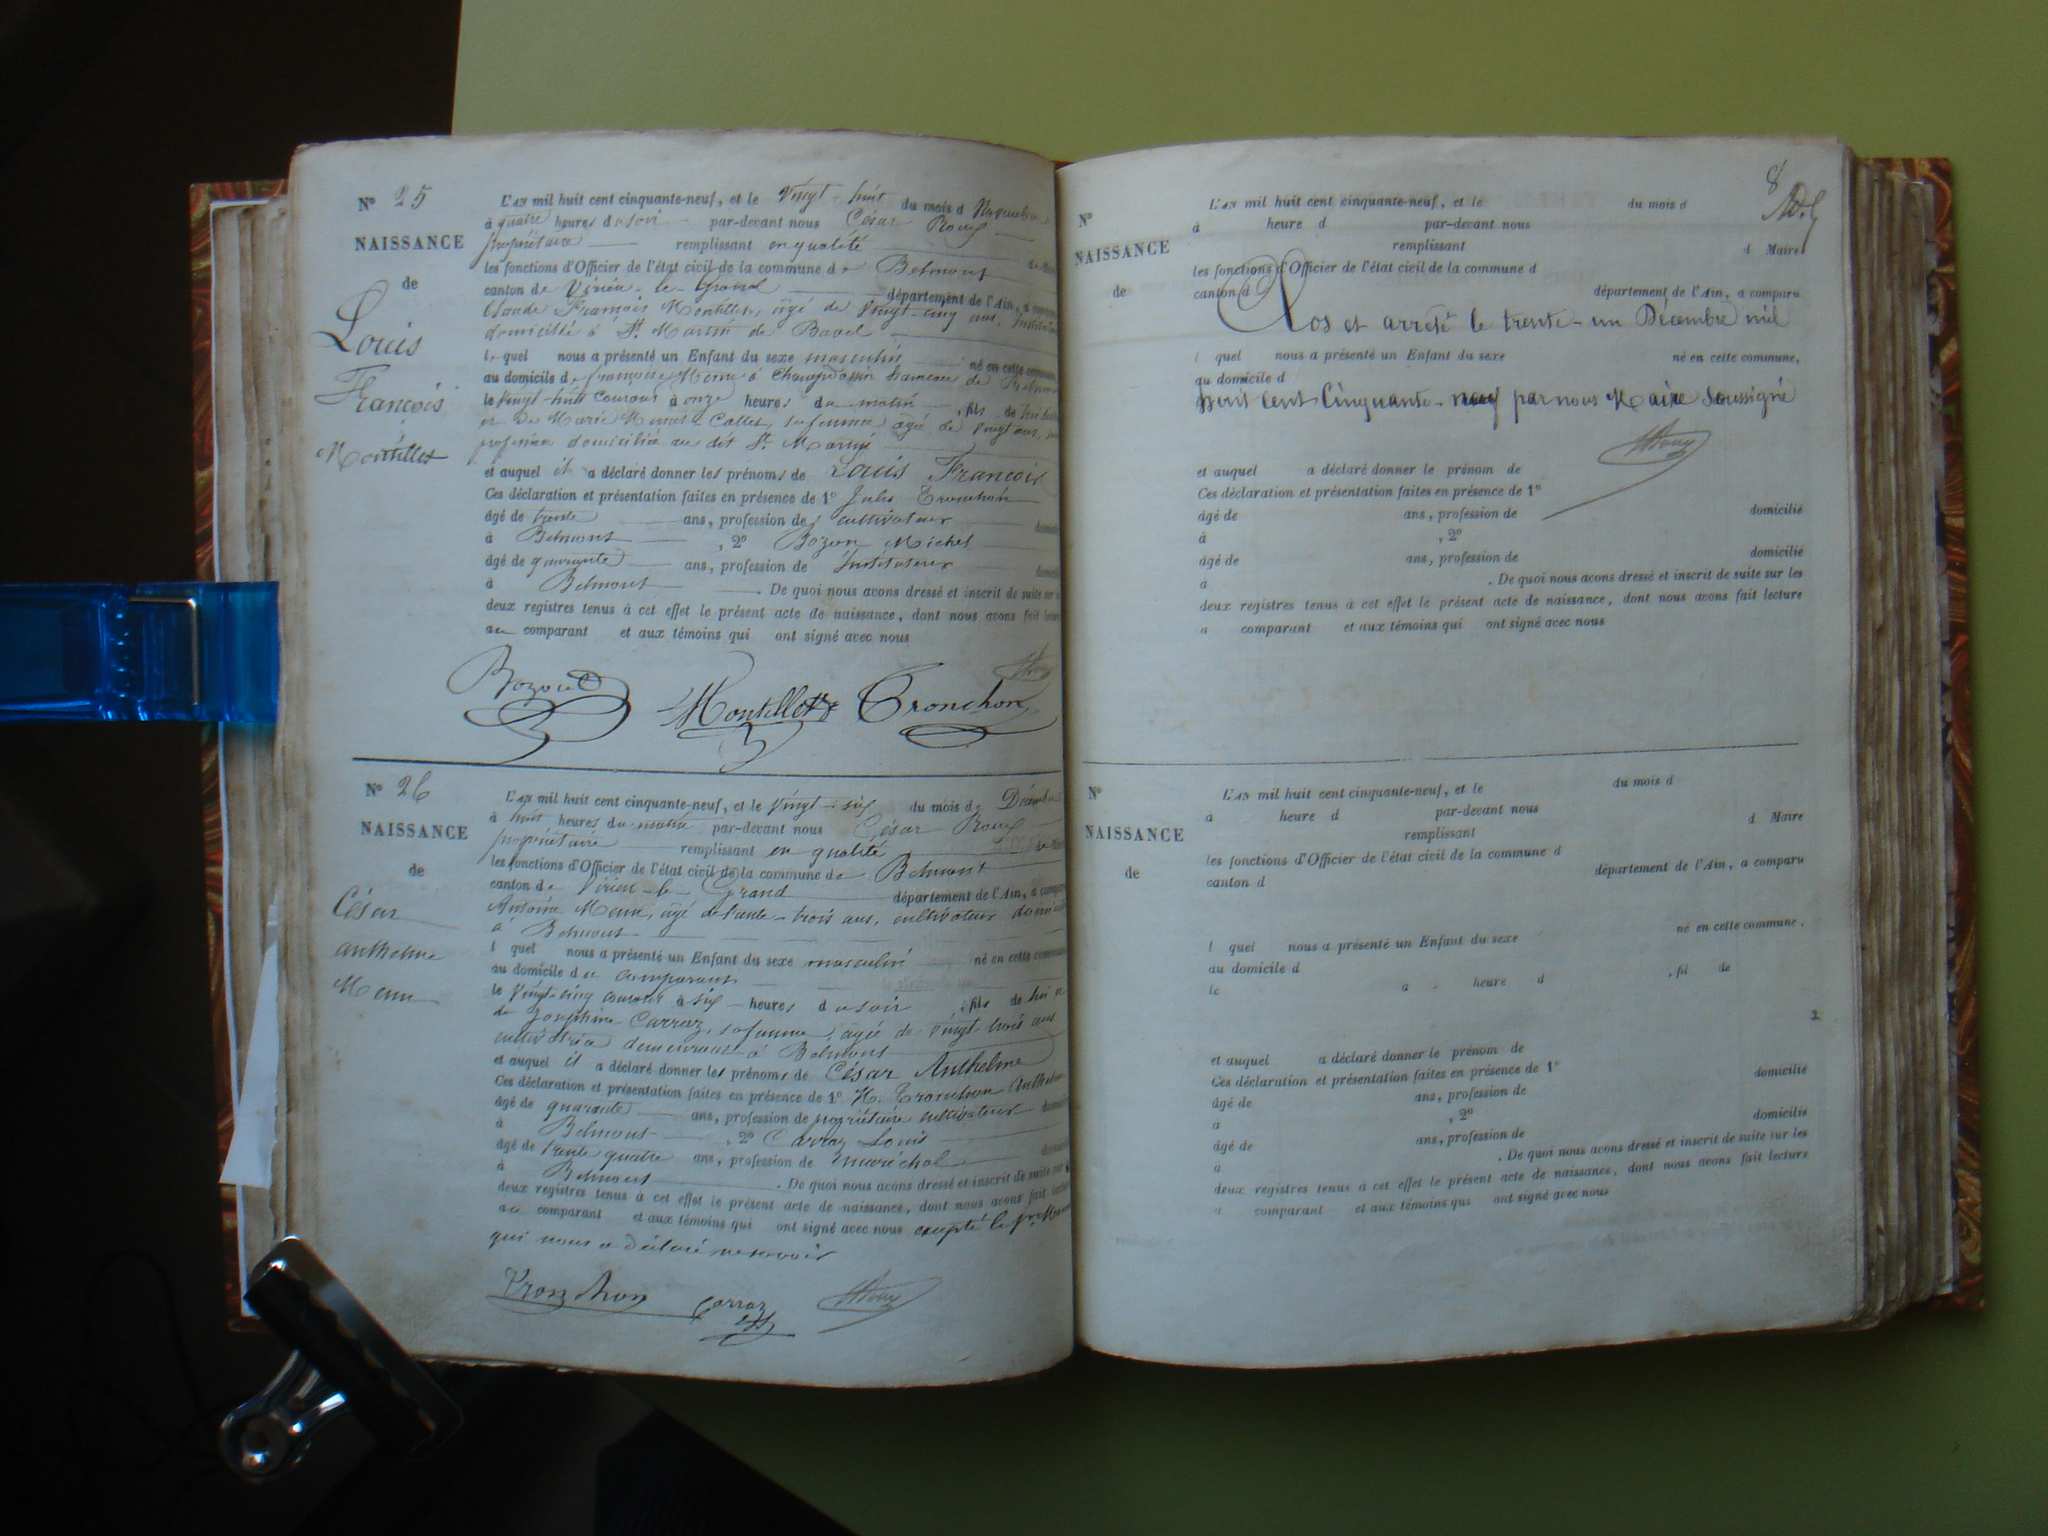 N° 25
NAISSANCE
de
Louis
François
Montillet
L'AN mil huit cent cinquante-neuf, et le vingt-huit du mois d Novembre
à quatre heures du soir par-devant nous César Roux
propriétaire remplissant en qualité de Maire
les fonctions d'Officier de l'état civil de la commune de Belmont
canton de Virieu-le-Grand département de l'Ain, a comparu
Claude François Montillet, âgé de vingt-cinq ans, instituteur
domicilié à St Martin de Bavel
lequel nous a présenté un Enfant du sexe masculin né en cette commune,
au domicile de françoise à hameau de
le vingt-huit courant à onze heures du matin, fils de lui
et de Marie Callet, sa femme âgée de vingt ans, sans
profession domiciliée au dit St Martin
et auquel il a déclaré donner les prénoms de Louis François
Ces déclaration et présentation faites en présence de 1° Jules Tronchon
âgé de trente ans, profession de cultivateur domicilié
à Belmont, 2° Bozon Michel
âgé de quarante ans, profession de Instituteur domicilié
à Belmont. De quoi nous avons dressé et inscrit de suite sur les
deux registres tenus à cet effet le présent acte de naissance, dont nous avons fait lecture
au comparant et aux témoins qui ont signé avec nous
Bozon Montillet Tronchon Roux
N° 26
NAISSANCE
de
César
anthelme
Menu
L'AN mil huit cent cinquante-neuf, et le vingt-six du mois d Décembre
à huit heures du matin par-devant nous César Roux
propriétaire remplissant en qualité de Maire
les fonctions d'Officier de l'état civil de la commune de Belmont
canton de Virieu-le-Grand département de l'Ain, a comparu
Antoine Menu, âgé de trente-trois ans, cultivateur domicilié
à Belmont
lequel nous a présenté un Enfant du sexe masculin né en cette commune
au domicile du comparant
le vingt-cinq courant à six heures du soir, fils de lui et
de Joséphine Carraz, sa femme, âgée de vingt-trois ans
cultivatrice demeurant à Belmont
et auquel il a déclaré donner les prénoms de César Anthelme
Ces déclaration et présentation faites en présence de 1° M. Tronchon Anthelme
âgé de quarante ans, profession de propriétaire cultivateur domicilié
à Belmont, 2° Carraz Louis
âgé de trente quatre ans, profession de maréchal domicilié
à Belmont. De quoi nous avons dressé et inscrit de suite sur les
deux registres tenus à cet effet le présent acte de naissance, dont nous avons fait lecture
au comparant et aux témoins qui ont signé avec nous excepté le Sr Menu
qui nous a déclaré ne savoir
Tronchon Carraz Roux
8
N°
NAISSANCE
de
L'AN mil huit cent cinquante-neuf, et le du mois d
à heure d par-devant nous
remplissant d Maire
les fonctions d'Officier de l'état civil de la commune d
canton d département de l'Ain, a comparu
Clos et arrêté le trente-un Décembre mil
l quel nous a présenté un Enfant du sexe né en cette commune,
au domicile d
huit cent Cinquante-neuf par nous Maire soussigné
Roux
et auquel a déclaré donner le prénom de
Ces déclaration et présentation faites en présence de 1°
âgé de ans, profession de domicilié
à , 2°
âgé de ans, profession de domicilié
à . De quoi nous avons dressé et inscrit de suite sur les
deux registres tenus à cet effet le présent acte de naissance, dont nous avons fait lecture
a comparant et aux témoins qui ont signé avec nous
N°
NAISSANCE
de
L'AN mil huit cent cinquante-neuf, et le du mois d
à heure d par-devant nous
remplissant d Maire
les fonctions d'Officier de l'état civil de la commune d
canton d département de l'Ain, a comparu
l quel nous a présenté un Enfant du sexe né en cette commune,
au domicile d
le à heure d , fil de
et auquel a déclaré donner le prénom de
Ces déclaration et présentation faites en présence de 1°
âgé de ans, profession de domicilié
à , 2°
âgé de ans, profession de domicilié
à . De quoi nous avons dressé et inscrit de suite sur les
deux registres tenus à cet effet le présent acte de naissance, dont nous avons fait lecture
a comparant et aux témoins qui ont signé avec nous